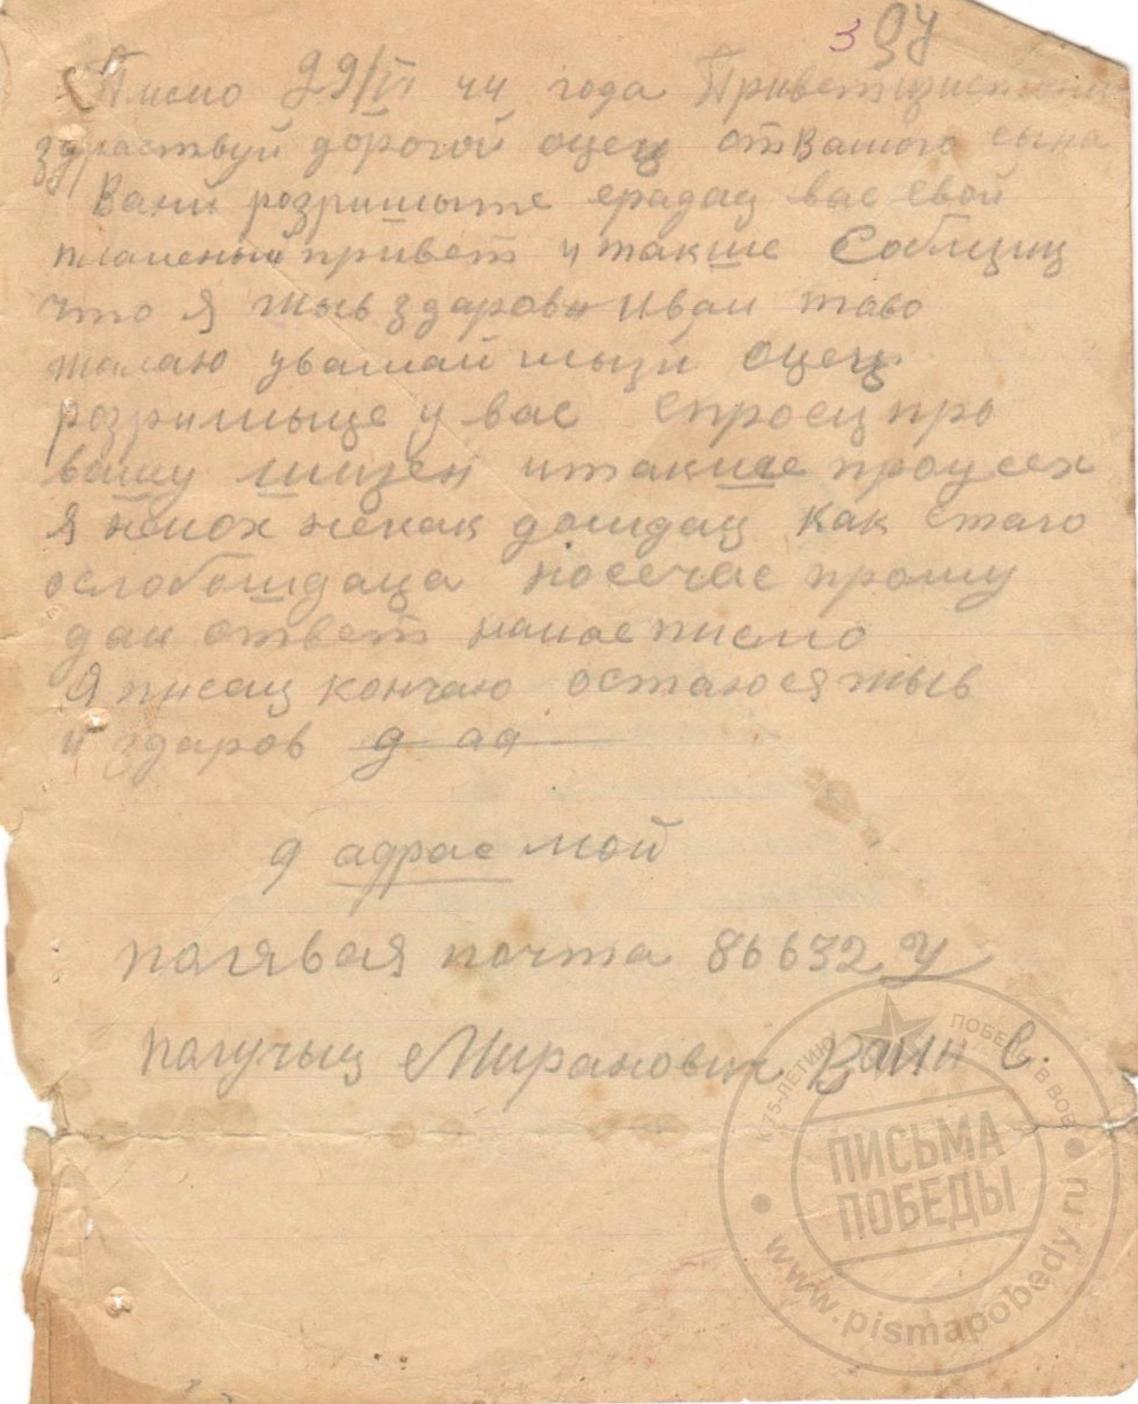 3 94
Писмо 29/VI 44 года Привет
здраствуй дорогой оцец от Вашого сына
Вани розришыте срадац вас свой
пламеный привет и такше Соблщиц
что я жыв здаров Иван таво
жалаю уважай мыци оцец
розришыце у вас спросиц про
вашу шизен и такше
я немох некак дошдац как стаго
ослобошдаца но сечас прошу
дай ответ на мое писмо
Я писац кончаю остаюся жыв
и здаров д ад
д адрас мой
палявая почта 86632 У
палучыц Миранович Вани С.
К 75-ЛЕТИЮ ПОБЕДЫ В ВОВ
ПИСЬМА
ПОБЕДЫ
www.pismapobedy.ru